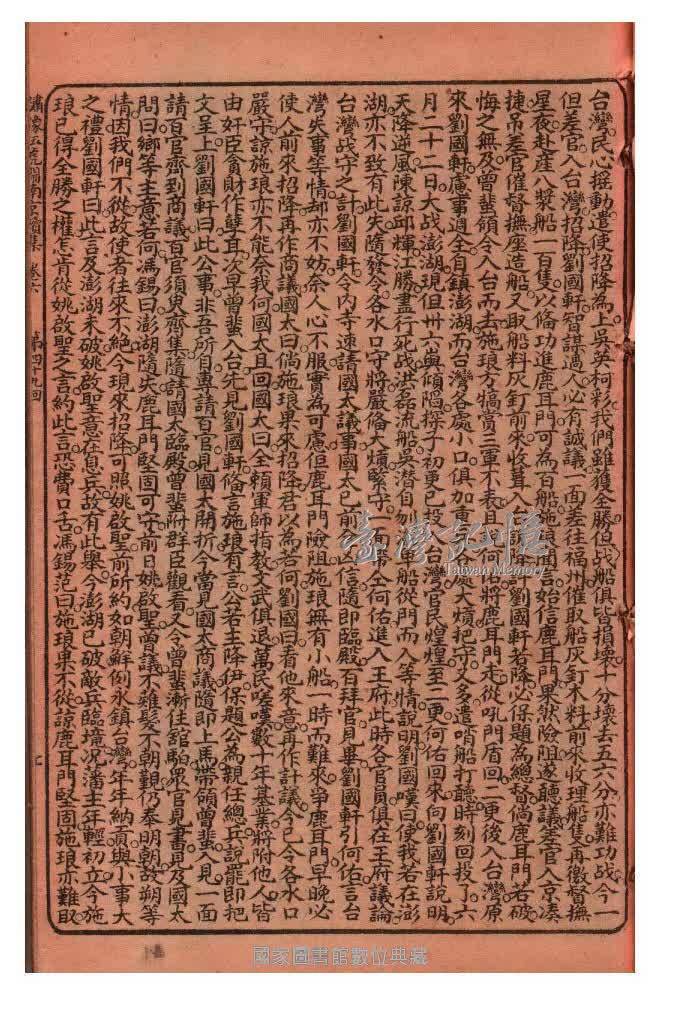 台灣民心搖動遣使招降為上吳英柯彩我們雖獲全勝但战船俱皆損壞十分壞去五六分亦難功战今一
但差官入台灣招降劉國軒智謀過人必有誠議一面差往福州催取船灰釘木料前來收理船隻再徵督撫
星夜赴座入槳船一百隻以俻功進鹿耳門可為百船施琅聞言始信鹿耳門果然險阻遂聽議差官入京凑
捷吊差官催督撫座造船又取船料灰釘前來收葺入台諒必劉國軒若降必保題為總督倘鹿耳門若破
悔之無及曾蜚領令入台而去施琅方犒賞三軍不表且 何 將鹿耳門走從吼門盾回二更後入台灣原
來劉國軒慮事週全自鎮澎湖而台灣各處小口俱加重 嚴大熕把守又多遣哨船打聽時刻回投了六
月二十二日大战澎湖現但卅六奠傾隁探子初更已投入台灣官民煌煌至二更何佑回來向劉國軒說明
天降逆風陳諒邱輝江勝盡行死战洪磊流船吳潜自刎 軍船從門而入等情說明劉國嘆曰使我若在澎
湖亦不致有此失隨發令各水口守將嚴俻大熕緊守 帶仝何佑進入王府此時各官員俱在王府議論
台灣战守之計劉國軒令內寺速請國太議事國太已前 凶信隨即臨殿百拜官見畢劉國軒引何佑言台
灣失事等情却亦不妨奈人心不服實為可慮但鹿耳門險阻施琅無有小船一時而難來爭鹿耳門早晚必
使人前來招降再作商議國太曰倘施琅果來招降君以為若何劉國曰看他來意再作計議今已令各水口
嚴守諒施琅亦不能奈我何國太且回國太曰全賴軍師指教文武俱退萬民嗟嘆數十年基業將附他人皆
由奸臣貪財作孽耳次早曾蜚入台先見劉國軒俻言施琅有言公若主降伊保題公為親任總兵說罷即把
文呈上劉國軒曰此公事非吾所自專請百官見國太開折今當見國太商議隨即上馬帶領曾蜚入見一面
請百官齊到商議百官須臾齊集隨請國太臨殿曾蜚附群臣觀看又令曾蜚漸往舘馹眾官見書見及國太
問曰鄉等主意若何馮錫曰澎湖隨失鹿耳門堅固可守前日姚啟聖曾議不薙髮不朝覲仍奉明朝故朔等
情因我們不從故使者往來不絶今現來招降可照姚啟聖前所約如朝鮮例永鎮台灣年年納貢與小事大
之禮劉國軒曰此言及澎湖未破姚啟聖意在息兵故有此舉今澎湖已破敵兵臨境況藩主年輕初立今施
琅已得全勝之權怎肯從姚啟聖之言約此言恐費口舌馮錫范曰施琅果不從諒鹿耳門堅固施琅亦難取
繡像五虎閙南京續集 卷六 第四十九回
臺灣記憶
Taiwan Memory
國家圖書館數位典藏